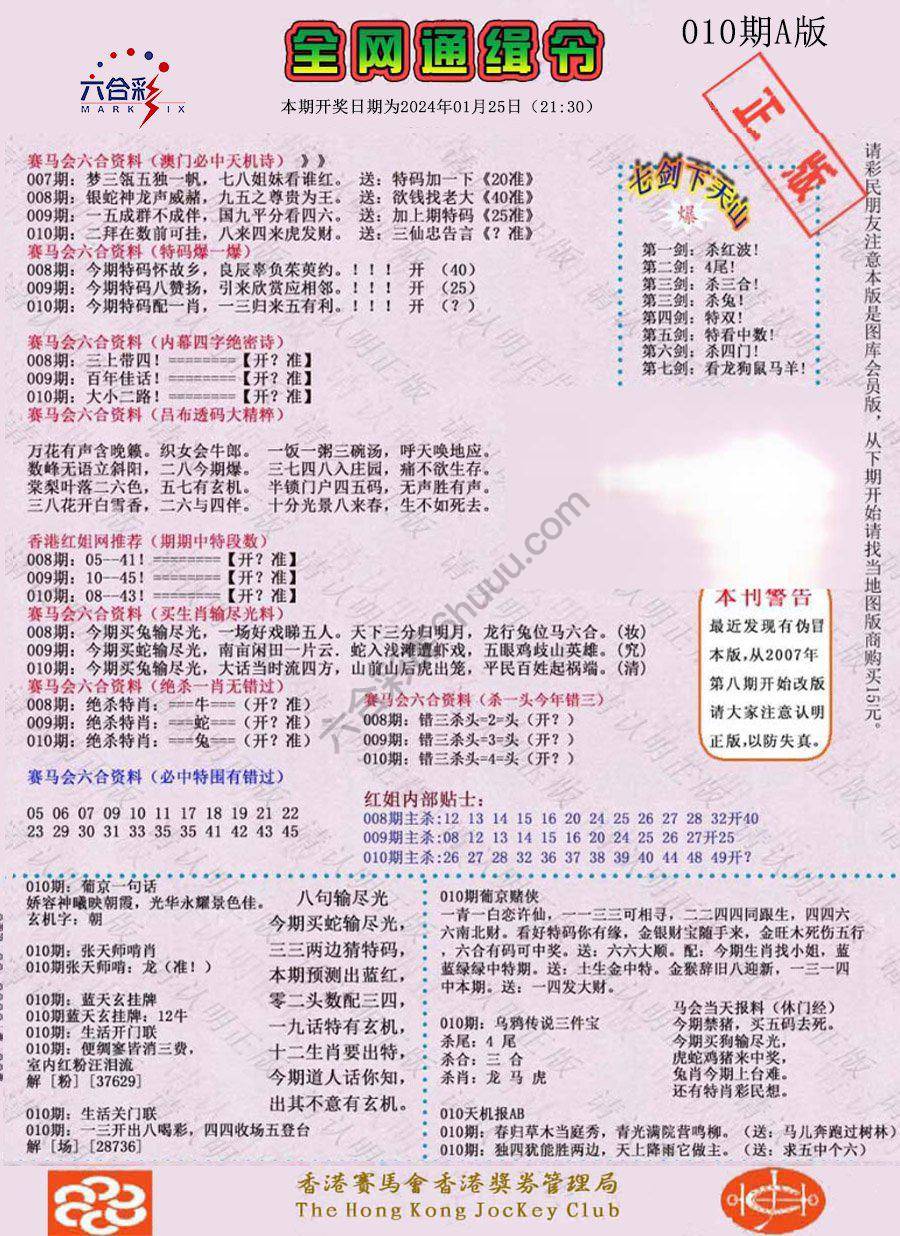 010期A版
全网通缉令
六合彩
MARK SIX
本期开奖日期为2024年01月25日（21:30）
正版
赛马会六合资料（澳门必中天机诗）》》
007期：梦三瓴五独一帆，七八姐妹看谁红。 送：特码加一下《20准》
008期：银蛇神龙声威赫，九五之尊贵为王。 送：欲钱找老大《40准》
009期：一五成群不成伴，国九平分看四六。 送：加上期特码《25准》
010期：二拜在数前可挂，八来四来虎发财。 送：三仙忠告言《？准》
赛马会六合资料（特码爆一爆）
008期：今期特码怀故乡，良辰辜负茱萸约。！！！ 开 （40）
009期：今期特码八赞扬，引来欣赏应相邻。！！！ 开 （25）
010期：今期特码配一肖，一三归来五有利。！！！ 开 （？）
赛马会六合资料（内幕四字绝密诗）
008期：三上带四！========【开？准】
009期：百年佳话！========【开？准】
010期：大小二路！========【开？准】
赛马会六合资料（吕布透码大精粹）
万花有声含晚籁。织女会牛郎。 一饭一粥三碗汤，呼天唤地应。
数峰无语立斜阳，二八今期爆。 三七四八入庄园，痛不欲生存。
棠梨叶落二六色，五七有玄机。 半锁门户四五码，无声胜有声。
三八花开白雪香，二六与四伴。 十分光景八来春，生不如死去。
香港红姐网推荐（期期中特段数）
008期：05--41！========【开？准】
009期：10--45！========【开？准】
010期：08--43！========【开？准】
赛马会六合资料（买生肖输尽光料）
008期：今期买兔输尽光，一场好戏睇五人。天下三分归明月，龙行兔位马六合。（妆）
009期：今期买蛇输尽光，南亩闲田一片云，蛇入浅滩遭虾戏，五眼鸡歧山英雄。（究）
010期：今期买兔输尽光，大话当时流四方，山前山后虎出笼，平民百姓起祸端。（清）
赛马会六合资料（绝杀一肖无错过）
008期：绝杀特肖：===牛===（开？准）
009期：绝杀特肖：===蛇===（开？准）
010期：绝杀特肖：===兔===（开？准）
赛马会六合资料（杀一头今年错三）
008期：错三杀头=2=头（开？）
009期：错三杀头=3=头（开？）
010期：错三杀头=4=头（开？）
赛马会六合资料（必中特围有错过）
05 06 07 09 10 11 17 18 19 21 22
23 29 30 31 33 35 35 41 42 43 45
红姐内部贴士：
008期主杀:12 13 14 15 16 20 24 25 26 27 28 32开40
009期主杀:08 12 13 14 15 16 20 24 25 26 27开25
010期主杀:26 27 28 32 36 37 38 39 40 44 48 49开？
七剑下天山
爆
第一剑：杀红波！
第二剑：4尾！
第三剑：杀三合！
第三剑：杀兔！
第四剑：特双！
第五剑：特看中数！
第六剑：杀四门！
第七剑：看龙狗鼠马羊！
请彩民朋友注意本版是图库会员版，从下期开始请找当地图版商购买15元。
本刊警告
最近发现有伪冒
本版,从2007年
第八期开始改版
请大家注意认明
正版,以防失真。
六合彩chuuu.com
010期：葡京一句话
娇容神曦映朝霞，光华永耀景色佳。
玄机字：朝
010期：张天师啃肖
010期张天师啃：龙（准！）
010期：蓝天玄挂牌
010期蓝天玄挂牌：12牛
010期：生活开门联
010期：便绸窭皆消三费，
室内红粉汪泪流
解［粉］[37629]
010期：生活关门联
010期：一三开出八喝彩，四四收场五登台
解［场］[28736]
八句输尽光
今期买蛇输尽光，
三三两边猜特码，
本期预测出蓝红，
零二头数配三四，
一九话特有玄机，
十二生肖要出特，
今期道人话你知，
出其不意有玄机。
010期葡京赌侠
一青一白恋许仙，一一三三可相寻，二二四四同跟生，四四六
六南北财。看好特码你有缘，金银财宝随手来，金旺木死伤五行
，六合有码可中奖。送：六六大顺。配：今期生肖找小姐，蓝
蓝绿绿中特期。送：土生金中特。金猴辞旧八迎新，一三一四
中本期。送：一四发大财。
010期：乌鸦传说三件宝
杀尾：4 尾
杀合：三 合
杀肖：龙 马 虎
马会当天报料（休门经）
今期禁猪，买五码去死。
今期买狗输尽光，
虎蛇鸡猪来中奖，
兔肖今期上台难。
还有特肖彩民想。
010天机报AB
010期：春归草木当庭秀，青光满院营鸣柳。（送：马儿奔跑过树林）
010期：独四犹能胜两边，天上降雨它做主。（送：求五中个六）
香港賽馬會香港獎券管理局
The Hong Kong JocKey Club